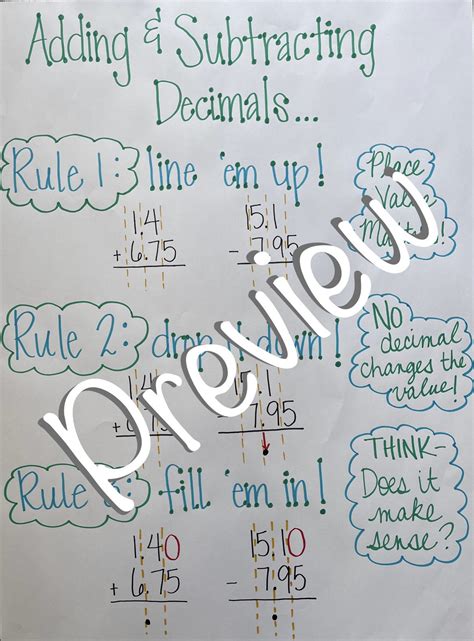 Adding & Subtracting
Decimals...
Rule 1: line 'em up!
Place
Value
Matters!
1.4
+ 6.75
15.1
- 7.95
Rule 2: drop it down!
NO
decimal
changes the
value!
1.4
+ 6.75
15.1
7.95
.
Rule 3: fill 'em in!
THINK-
Does it
make
sense?
1.40
+ 6.75
.
15.10
- 7.95
.
Preview